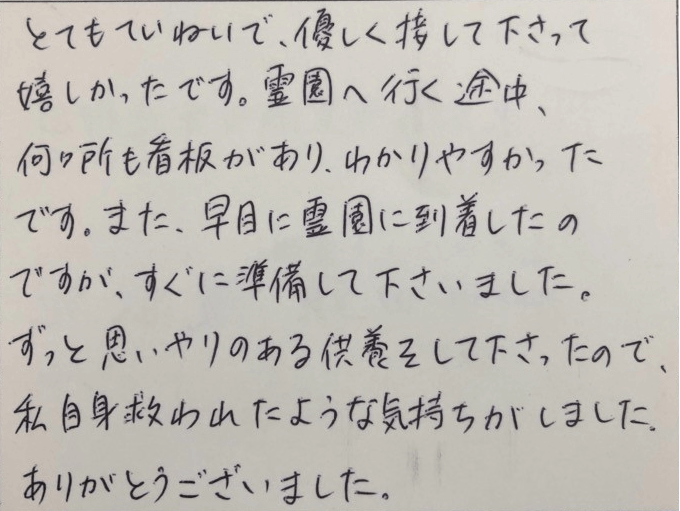 とてもていねいで、優しく接して下さって
嬉しかったです。霊園へ行く途中、
何ヶ所も看板があり、わかりやすかった
です。また、早目に霊園に到着したの
ですが、すぐに準備して下さいました。
ずっと思いやりのある供養をして下さったので、
私自身救われたような気持ちがしました。
ありがとうございました。